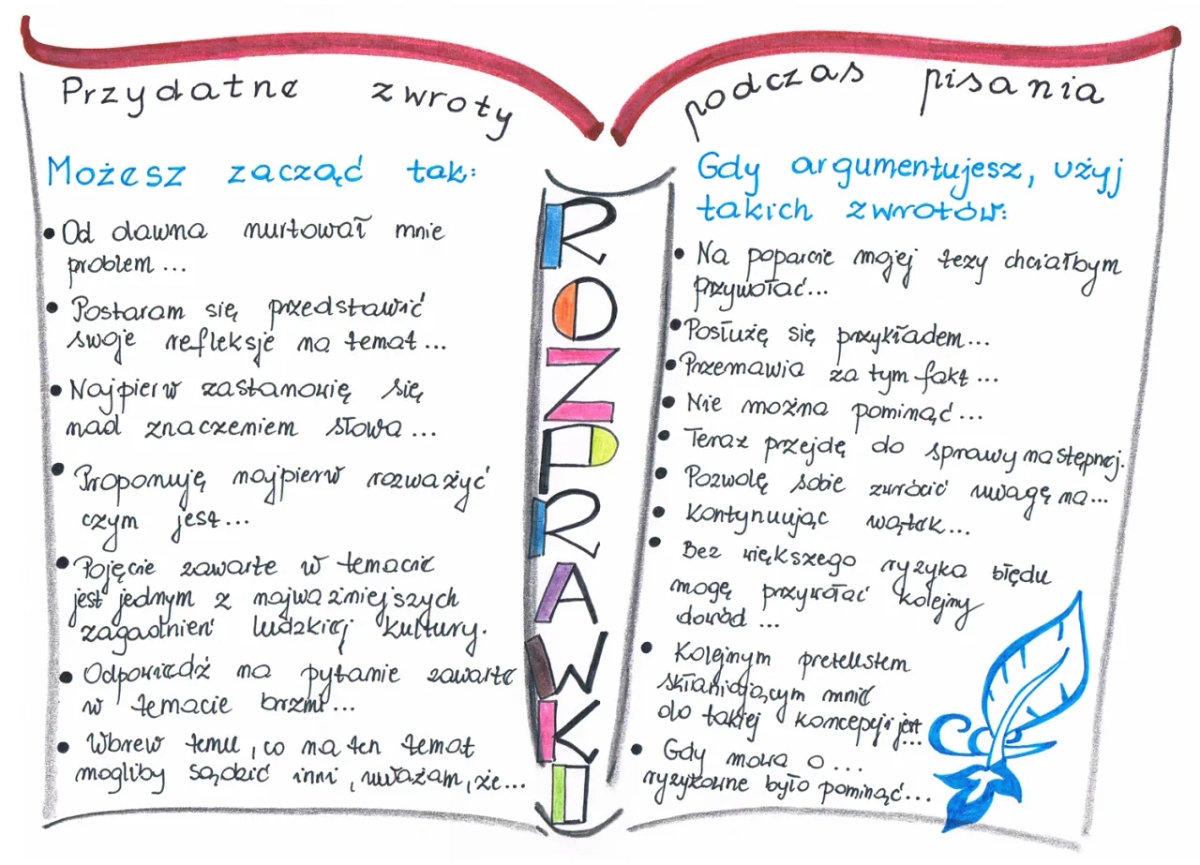 Przydatne zwroty podczas pisania
Możesz zacząć tak:
• Od dawna nurtował mnie
problem...
• Postaram się przedstawić
swoje refleksje na temat...
• Najpierw zastanowię się
nad znaczeniem słowa...
• Proponuję najpierw rozważyć
czym jest...
• Pojęcie zawarte w temacie
jest jednym z najważniejszych
zagadnień ludzkiej kultury.
• Odpowiedź na pytanie zawarte
w temacie brzmi...
• Wbrew temu, co na ten temat
mogliby sądzić inni, uważam, że...
ROZPRAWKI
Gdy argumentujesz, użyj
takich zwrotów:
• Na poparcie mojej tezy chciałbym
przywołać...
• Posłużę się przykładem...
• Przemawia za tym fakt...
• Nie można pominąć...
• Teraz przejdę do sprawy następnej.
• Pozwolę sobie zwrócić uwagę na...
• Kontynuując wątek...
• Bez większego ryzyka błędu
mogę przywołać kolejny
dowód...
• Kolejnym pretekstem
skłaniającym mnie
do takiej koncepcji jest...
• Gdy mowa o...
ryzykowne było pominąć...